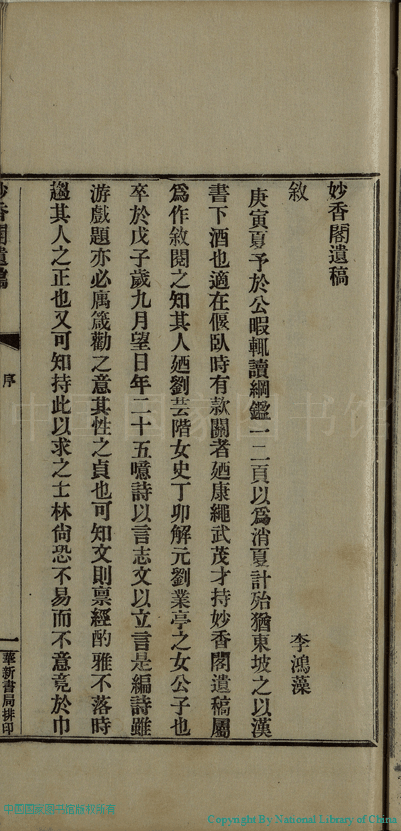 妙香閣遺稿
敘
李鴻藻
庚寅夏予於公暇輒讀綱鑑一二頁以爲消夏計殆猶東坡之以漢
書下酒也適在偃臥時有款關者廼康繩武茂才持妙香閣遺稿屬
爲作敘閱之知其人廼劉芸階女史丁卯解元劉業亭之女公子也
卒於戊子歲九月望日年二十五噫詩以言志文以立言是編詩雖
游戲題亦必寓箴勸之意其性之貞也可知文則禀經酌雅不落時
趨其人之正也又可知持此以求之士林尙恐不易而不意竟於巾
妙香閣遺稿
序
一
華新書局排印
中国国家图书馆
中国国家图书馆版权所有
Copyright By National Library of China